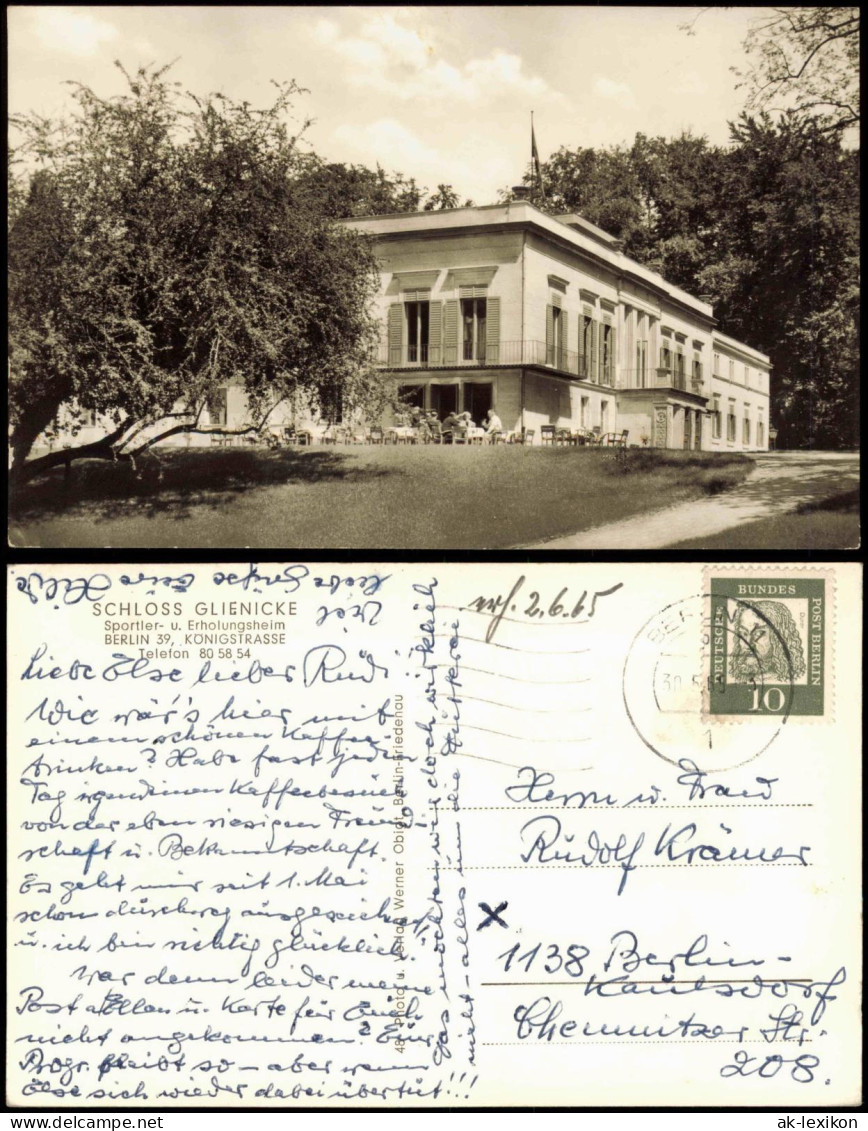 Viel liebe Grüße Eure Hilde
SCHLOSS GLIENICKE
Sportler- u. Erholungsheim
BERLIN 39, KÖNIGSTRASSE
Telefon 80 58 54
Liebe Else lieber Rudi
Wie wär's hier mit
einem schönen Kaffee-
trinken? Habe fast jeden
Tag irgendeinen Kaffeebesuch
von der eben riesigen Freund-
schaft u. Bekanntschaft.
Es geht mir seit 1. Mai
schon durchweg ausgezeichnet
u. ich bin richtig glücklich!
War denn leider meine
Post Ellen u. Karte für Euch
nicht angekommen? Eure
Progr. bleibt so – aber wenn
Else sich wieder dabei übertut!!!
Das möchten wir doch wirklich
nicht – alles um die
48 Photo u. Verlag Werner Obigt, Berlin-Friedenau
erh. 2.6.65
BERLIN
30.5.65
1
DEUTSCHE BUNDES POST BERLIN
Dürer
10
Herrn u. Frau
Rudolf Krämer
X
1138 Berlin-
Kaulsdorf
Chemnitzer Str.
208.
ak-lexikon